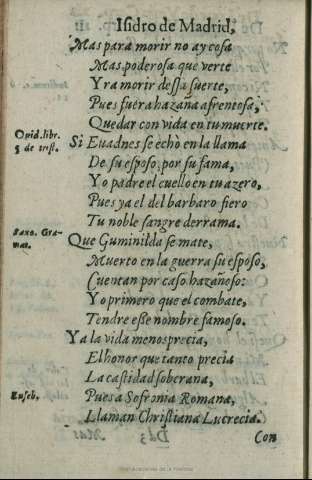 Isidro de Madrid,
Mas para morir no ay cosa
Mas poderosa que verte
Y ra morir dessa suerte,
Pues fuera hazaña afrentosa,
Quedar con vida en tu muerte.
Ouid. libr.
5 de trist.
Si Euadnes se echò en la llama
De su esposo, por su fama,
Yo padre el cuello en tu azero,
Pues ya el del barbaro fiero
Tu noble sangre derrama.
Saxo. Gra-
mat.
Que Guminilda se mate,
Muerto en la guerra su esposo,
Cuentan por caso hazañoso:
Yo primero que el combate,
Tendre esse nombre famoso.
Ya la vida menosprecia,
El honor que tanto precia
La castidad soberana,
Euseb.
Pues a Sofronia Romana,
Llaman Christiana Lucrecia.
Con